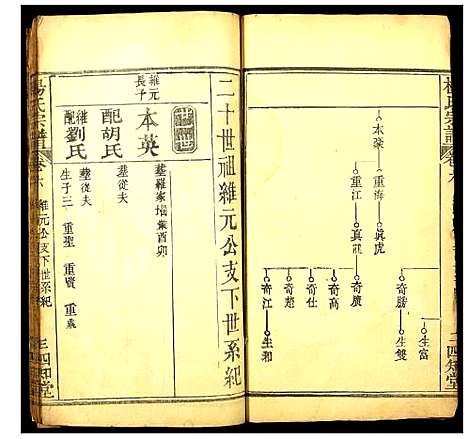 楊氏宗譜
卷六
本榮
重海
重江
真虎
真龍
奇勝
奇廣
奇高
奇仕
奇超
奇江
生富
生雙
生和
四知堂
二十世祖維元公支下世系紀
維元長子
本英
葬羅家塆葉酉卯
配胡氏
葬從夫
繼配劉氏
葬從夫
生子三 重聖 重賢 重
楊氏宗譜
卷六
維元公支下世系紀
三
四知堂